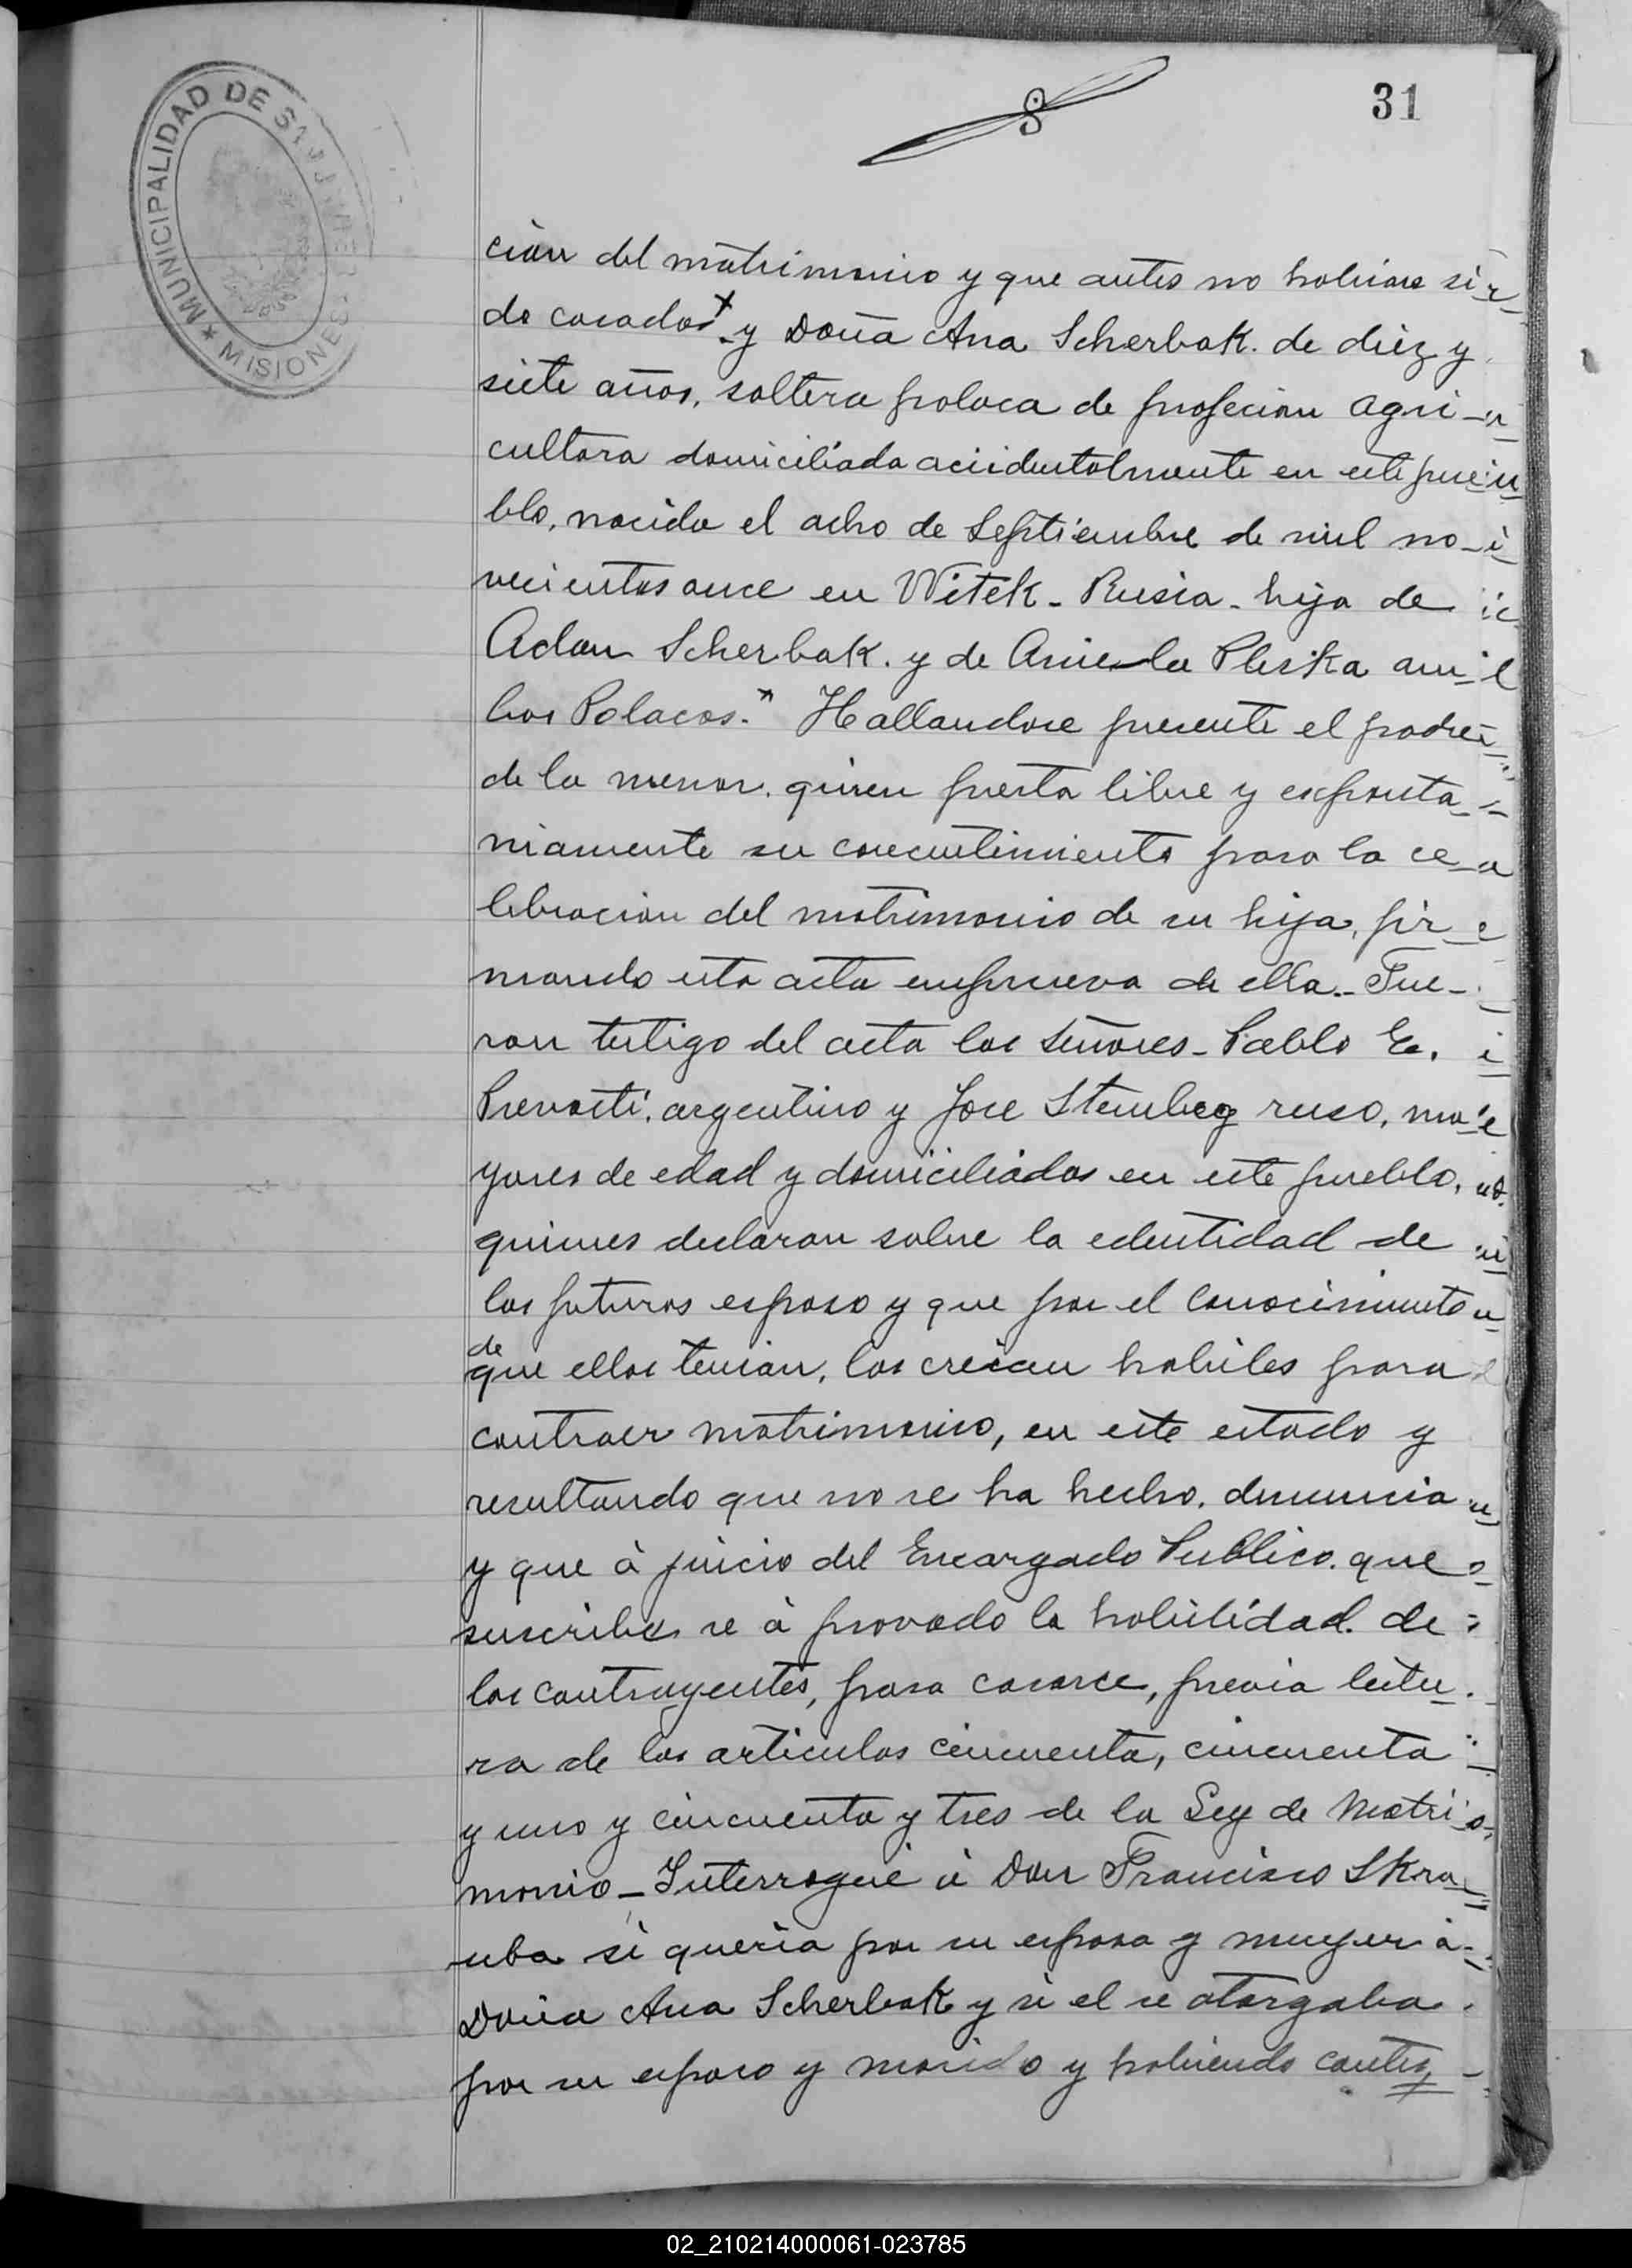 31
MUNICIPALIDAD DE S. JAVIER
★ MISIONES
cion del matrimonio y que antes no habian si-
do casados + y Doña Ana Scherbak. de diez y
siete años, soltera polaca de profecion agri-
cultora domiciliada accidentalmente en este pue-
blo, nacida el acho de Septiembre de mil no-
vecientos once en Witek - Rusia - hija de
Adan Scherbak. y de Aniela Pleska am-
bos Polacos." Hallandose presente el padre
de la menor. quien presta libre y esponta-
niamente su consentimiento para la ce-
lebracion del matrimonio de su hija, fir-
mando esta acta enprueva de ella.- Fue-
ron testigo del acta los señores - Pablo E.
Prevosti, argentino y Jose Stemberg ruso, ma-
yores de edad y domiciliados en este pueblo,
quienes declaran sobre la edentidad de
los futuros esposo y que por el conocimiento
de
que ellos tenian, los creian habiles para
contraer matrimonio, en este estado y
resultando que no se ha hecho. denuncia
y que à juicio del Encargado Publico. que
suscribe se à provado la habilidad. de
los contrayentes, para casarse, previa letu-
ra de los articulos cincuenta, cincuenta
y uno y cincuenta y tres de la Ley de Matri-
monio - Interrogué à Don Francisco Skra-
uba si queria por su esposa y muyer à
Doña Ana Scherbak y si el se otorgaba
por su esposo y marido y habiendo contes
02_210214000061-023785